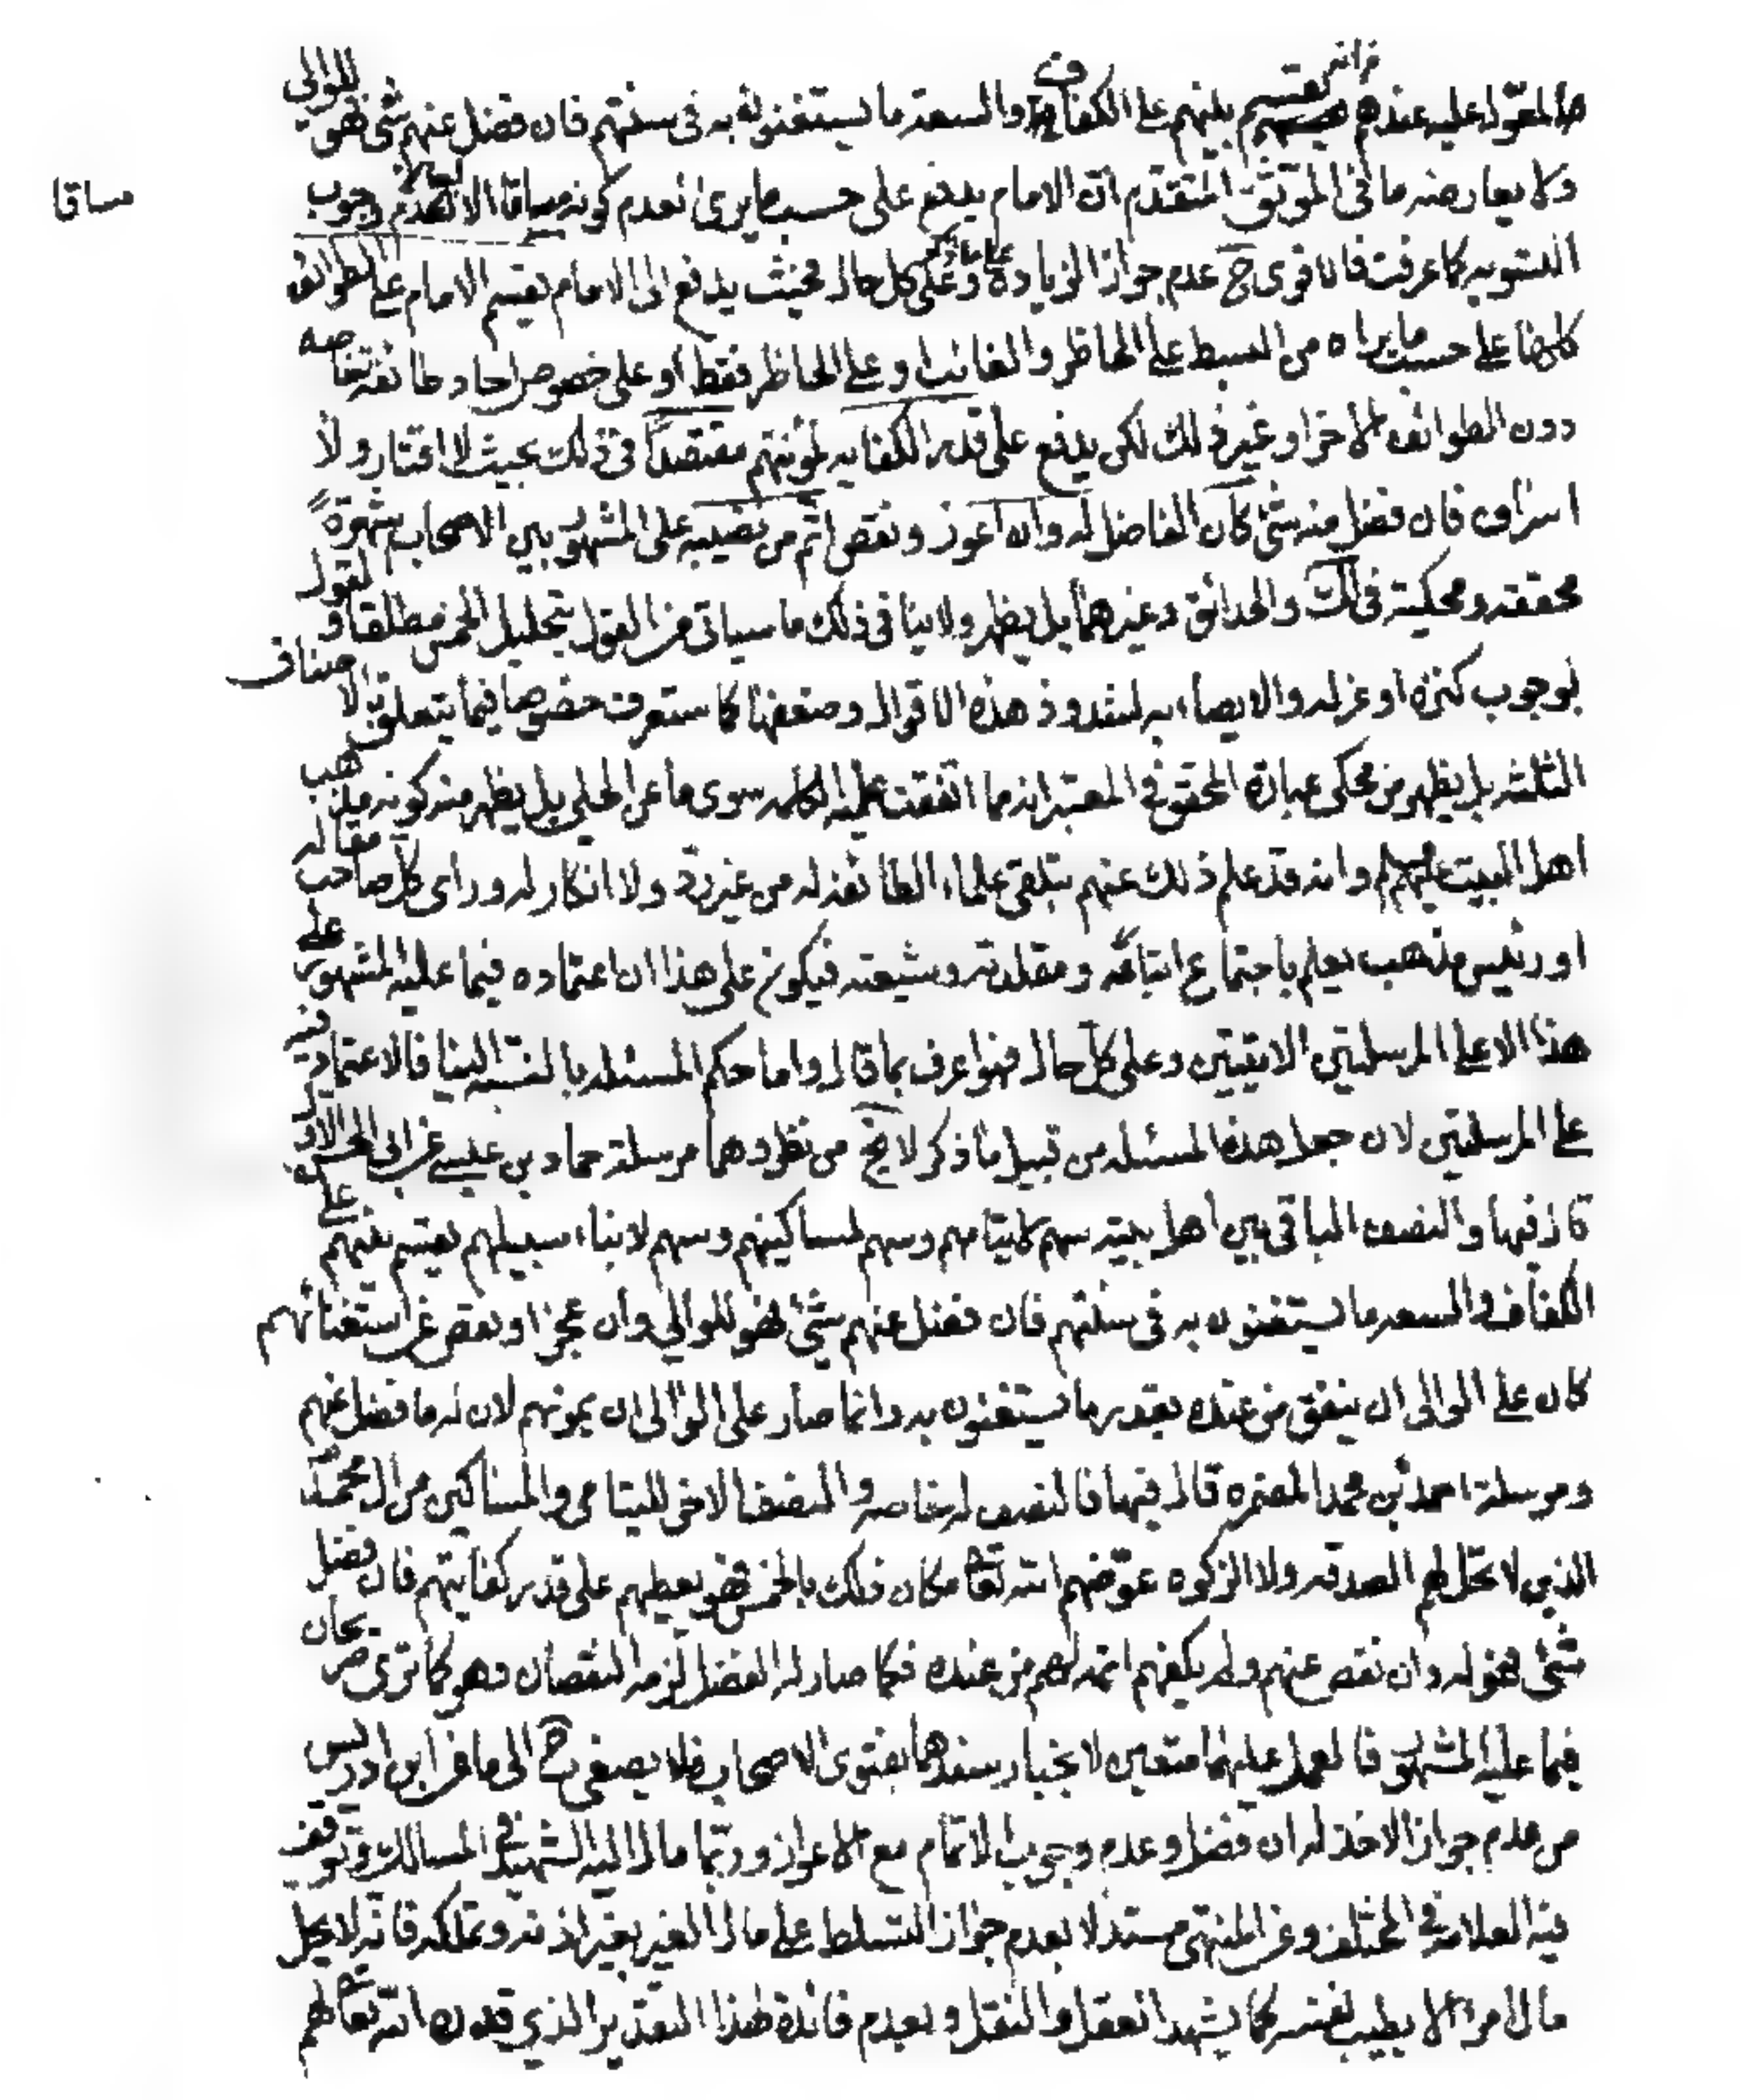 المعوّل عليه عندهم من انه يقسم بينهم على الكفاف والسعة ما يستغنون به فى سنتهم فان فضل عنهم شئ فهو للوالي
ولا يعارضه ما فى الموثق المتقدم ان الامام يدفع على حسب ما يرى لعدم كونه مساقا الا لبيان عدم وجوب
مساقا
التسويه كما عرفت فالاقوى ح عدم جواز الزيادة على ما ذكر وعلى كل حال فحيث يدفع الى الامام يقسم الامام على الطوائف
كلها على حسب ما يراه من البسط على الحاظر والغائب او على الحاظر فقط او على خصوص احاد طائفة خاصه
دون الطوائف الاخر او غير ذلك لكن يدفع على قدر الكفايه لمؤنتهم مقتصداً فى ذلك بحيث لا اقتار ولا
اسراف فان فضل منه شئ كان الفاضل له وان اعوز ونقص اتم من نصيبه على المشهور بين الاصحاب شهرةً
محققه ومحكية فى لك والحدائق وغيرهما بل يظهر ولا ينافى ذلك ما سياتى من القول بتحليل الخمس مطلقا والقول
بوجوب كنزه او عزله والايصاء به لشذوذ هذه الاقوال وضعفها كما ستعرف خصوصا فيما يتعلق بالاصناف
الثلثه بل يظهر من محكى عبارة المحقق فى المعتبر انه مما اتفقت عليه الكلمه سوى ما عن الحلي بل يظهر منه كونه مذهب
اهل البيت عليهم السلام وانه قد علم ذلك عنهم بتلقى علماء الطائفة له من غير ردّ ولا انكار له وراى كل صاحب مقاله
او رئيس مذهب يعلم باجتماع اتباعه ومقلدته وشيعته فيكون على هذا ان اعتماده فيما عليه المشهور على
هذا لا على المرسلتين الاتيتين وعلى كل حال فهو اعرف بما قال واما حكم المسئله بالنسبه الينا فالاعتماد فيه
على المرسلتين لان جعل هذه المسئله من قبيل ما ذكر لا يخ من نظر وهما مرسلة حماد بن عيسى عن ابى الحسن الاول
قال فيها والنصف الباقى بين اهل بيته سهم لايتامهم وسهم لمساكينهم وسهم لابناء سبيلهم يقسم بينهم على
الكفاف والسعه ما يستغنون به فى سنتهم فان فضل عنهم شئ فهو للوالي وان عجز او نقص عن استغنائهم
كان على الوالى ان ينفق من عنده بقدر ما يستغنون به وانما صار على الوالى ان يمونهم لان له ما فضل عنهم
ومرسلة احمد بن محمد المضمره قال فيها فالنصف له خاصه والنصف الاخر لليتامى والمساكين من ال محمد
الذين لا تحل لهم الصدقه ولا الزكوه عوّضهم الله تعالى مكان ذلك بالخمس فهو يعطيهم على قدر كفايتهم فان فضل
شئ فهو له وان نقص عنهم ولم يكفهم اتمه لهم من عنده فكما صار له الفضل لزمه النقصان وهو كما ترى صريحان
فيما عليه المشهور فالعمل عليهما متعين لانجبار سندهما بفتوى الاصحاب فلا يصغى ح الى ما عن ابن ادريس
من عدم جواز الاخذ له ان فضل وعدم وجوب الاتمام مع الاعواز وربّما مال اليه الشهيد فى المسالك وتوقف
فيه العلامه فى المختلف وعن المنتهى مستدلا بعدم جواز التسلط على مال الغير بغير اذنه وتملكه فانّه لا يحل
مال امرء الا بطيب نفسه كما يشهد العقل والنقل وبعدم فائدة لهذا التقدير الذي قدره الله تعالى لهم